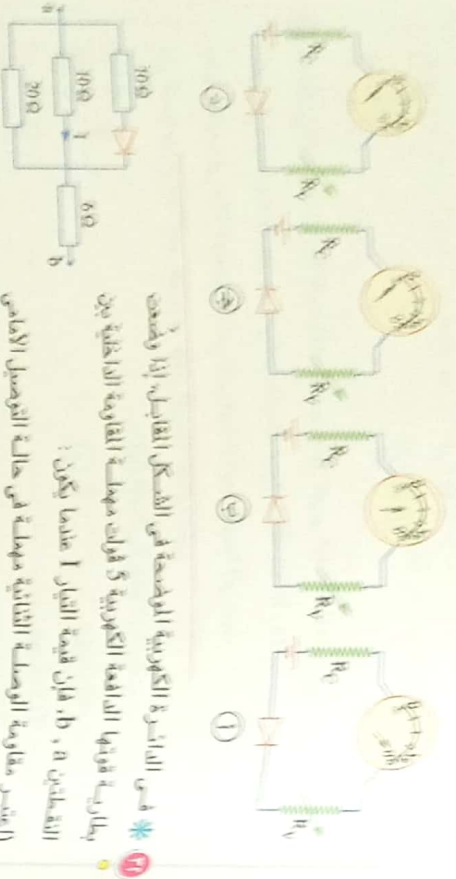 R_C
R_V
(أ)
R_C
R_V
(ب)
R_C
R_V
(ج)
R_C
R_V
(د)
* فى الدائرة الكهربية الموضحة فى الشكل المقابل، إذا وضعت
بطارية قوتها الدافعة الكهربية 5 فولت مهملة المقاومة الداخلية بين
النقطتين b ، a، فإن قيمة التيار I عندما يكون :
(اعتبر مقاومة الوصلة الثنائية مهملة فى حالة التوصيل الأمامى
10 Ω
10 Ω
I
20 Ω
6 Ω
a
b